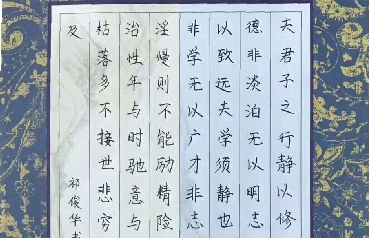 夫君子之行静以修
德非淡泊无以明志
以致远夫学须静也
非学无以广才非志
淫慢则不能励精险
治性年与时驰意与
枯落多不接世悲穷
及
祁俊华书